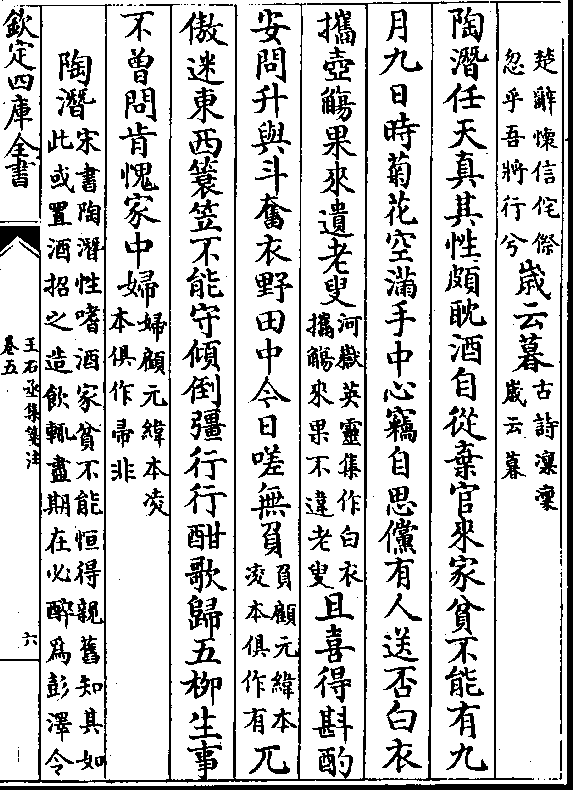 楚辭懷信侘傺
忽乎吾將行兮
歲云暮
古詩凜凜
歲云暮
陶潛任天真其性頗耽酒自從棄官來家貧不能有九
月九日時菊花空滿手中心竊自思儻有人送否白衣
攜壺觴果來遺老叟
河嶽英靈集作白衣
攜觴來果不違老叟
且喜得斟酌
安問升與斗奮衣野田中今日嗟無負
負顧元緯本
凌本俱作有
兀
傲迷東西蓑笠不能守傾倒彊行行酣歌歸五柳生事
不曾問肯愧家中婦
婦顧元緯本凌
本俱作帚非
陶潛
宋書陶潛性嗜酒家貧不能恒得親舊知其如
此或置酒招之造飲輒盡期在必醉爲彭澤令
欽定四庫全書
王右丞集箋注
卷五
六